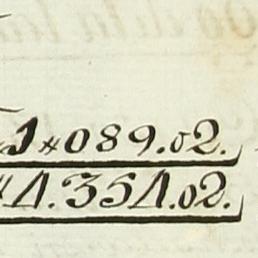 1*089.02.
4.354.02.